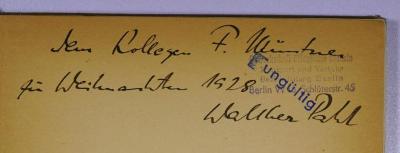 Dem Kollegen F. Müntner
zu Weihnachten 1928
Walther Pahl
und Verkehr
Berlin
Schlüterstr. 45
Ungültig